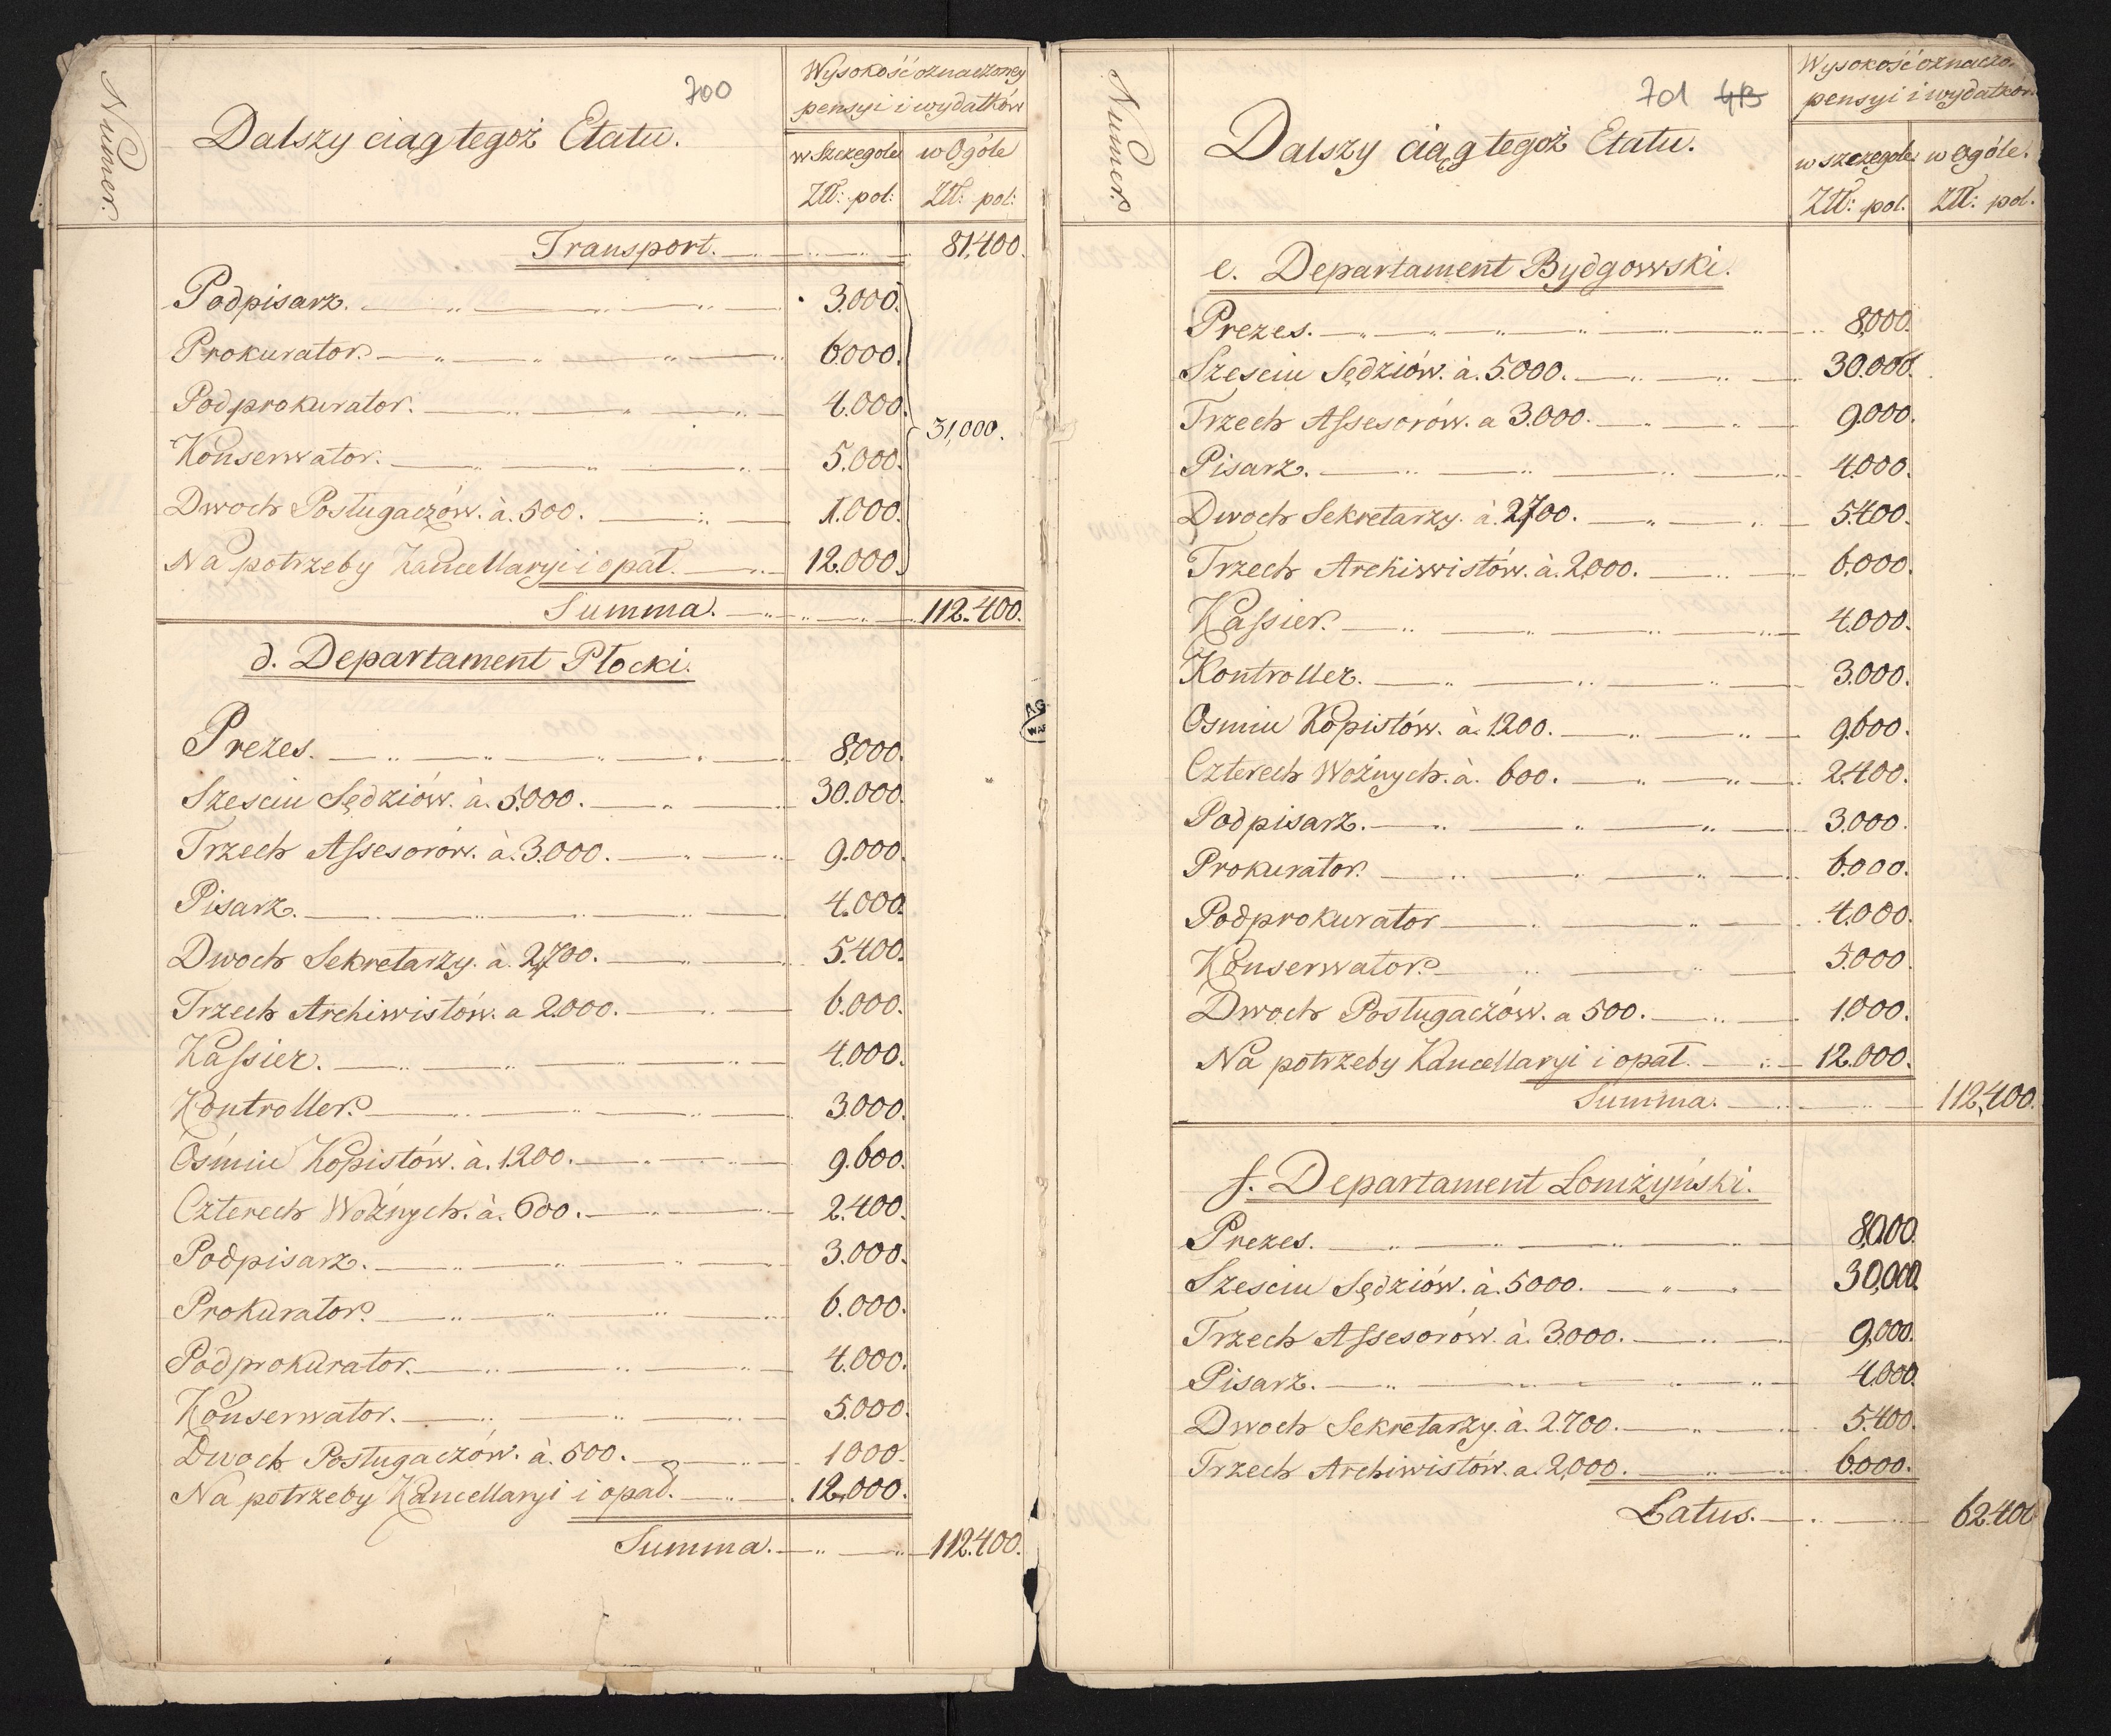 Numer.
700
Dalszy ciąg tegoż Etatu.
Wysokość oznaczoney
pensyi i wydatków
w Szczególe w Ogóle
Złł: pol: Złł: pol:
Transport. 81,400.
Podpisarz. 3.000.
Prokurator. 6.000.
Podprokurator. 4.000.
31,000.
Konserwator. 5.000.
Dwoch Posługaczów. à. 500. 1.000.
Na potrzeby Kancellaryi i opał. 12.000.
Summa. 112.400.
d. Departament Płocki.
Prezes. 8,000.
Szesciu Sędziów. à. 5.000. 30.000.
Trzech Assesorów. à. 3.000. 9.000.
Pisarz. 4.000.
Dwoch Sekretarzy. à. 2,700. 5.400.
Trzech Archiwistów. a 2.000. 6.000.
Kassier. 4.000.
Kontroller. 3.000.
Ośmiu Kopistów. à. 1.200. 9.600.
Czterech Woźnych. à. 600. 2.400.
Podpisarz. 3.000.
Prokurator. 6.000.
Podprokurator. 4.000.
Konserwator. 5.000.
Dwoch Posługaczów. à. 500. 1000.
Na potrzeby Kancellaryi i opał. 12,000.
Summa. 112.400.
Numer.
701 413
Dalszy ciąg tegoż Etatu.
Wysokość oznaczo
pensyi i wydatków
w szczególe w Ogóle.
Złł: pol. Złł: pol.
e. Departament Bydgowski.
Prezes. 8,000.
Szesciu Sędziów. à. 5.000. 30.000.
Trzech Assesorów. a 3.000. 9.000.
Pisarz. 4.000.
Dwoch Sekretarzy. à. 2,700. 5.400.
Trzech Archiwistów. à. 2,000. 6.000.
Kassier. 4.000.
Kontroller. 3.000.
Osmiu Kopistów. à. 1.200. 9.600.
Czterech Woźnych. à. 600. 2.400.
Podpisarz. 3.000.
Prokurator. 6.000.
Podprokurator 4.000.
Konserwator. 5.000.
Dwoch Posługaczów. a 500. 1.000.
Na potrzeby Kancellaryi i opał. 12.000.
Summa. 112,400.
f. Departament Łomżyński.
Prezes. 8,000.
Szesciu Sędziów. à. 5000. 30,000.
Trzech Assesorów. à. 3.000. 9,000.
Pisarz. 4,000.
Dwoch Sekretarzy. à. 2.700. 5.400.
Trzech Archiwistów. a. 2,000. 6.000.
Latus. 62.400